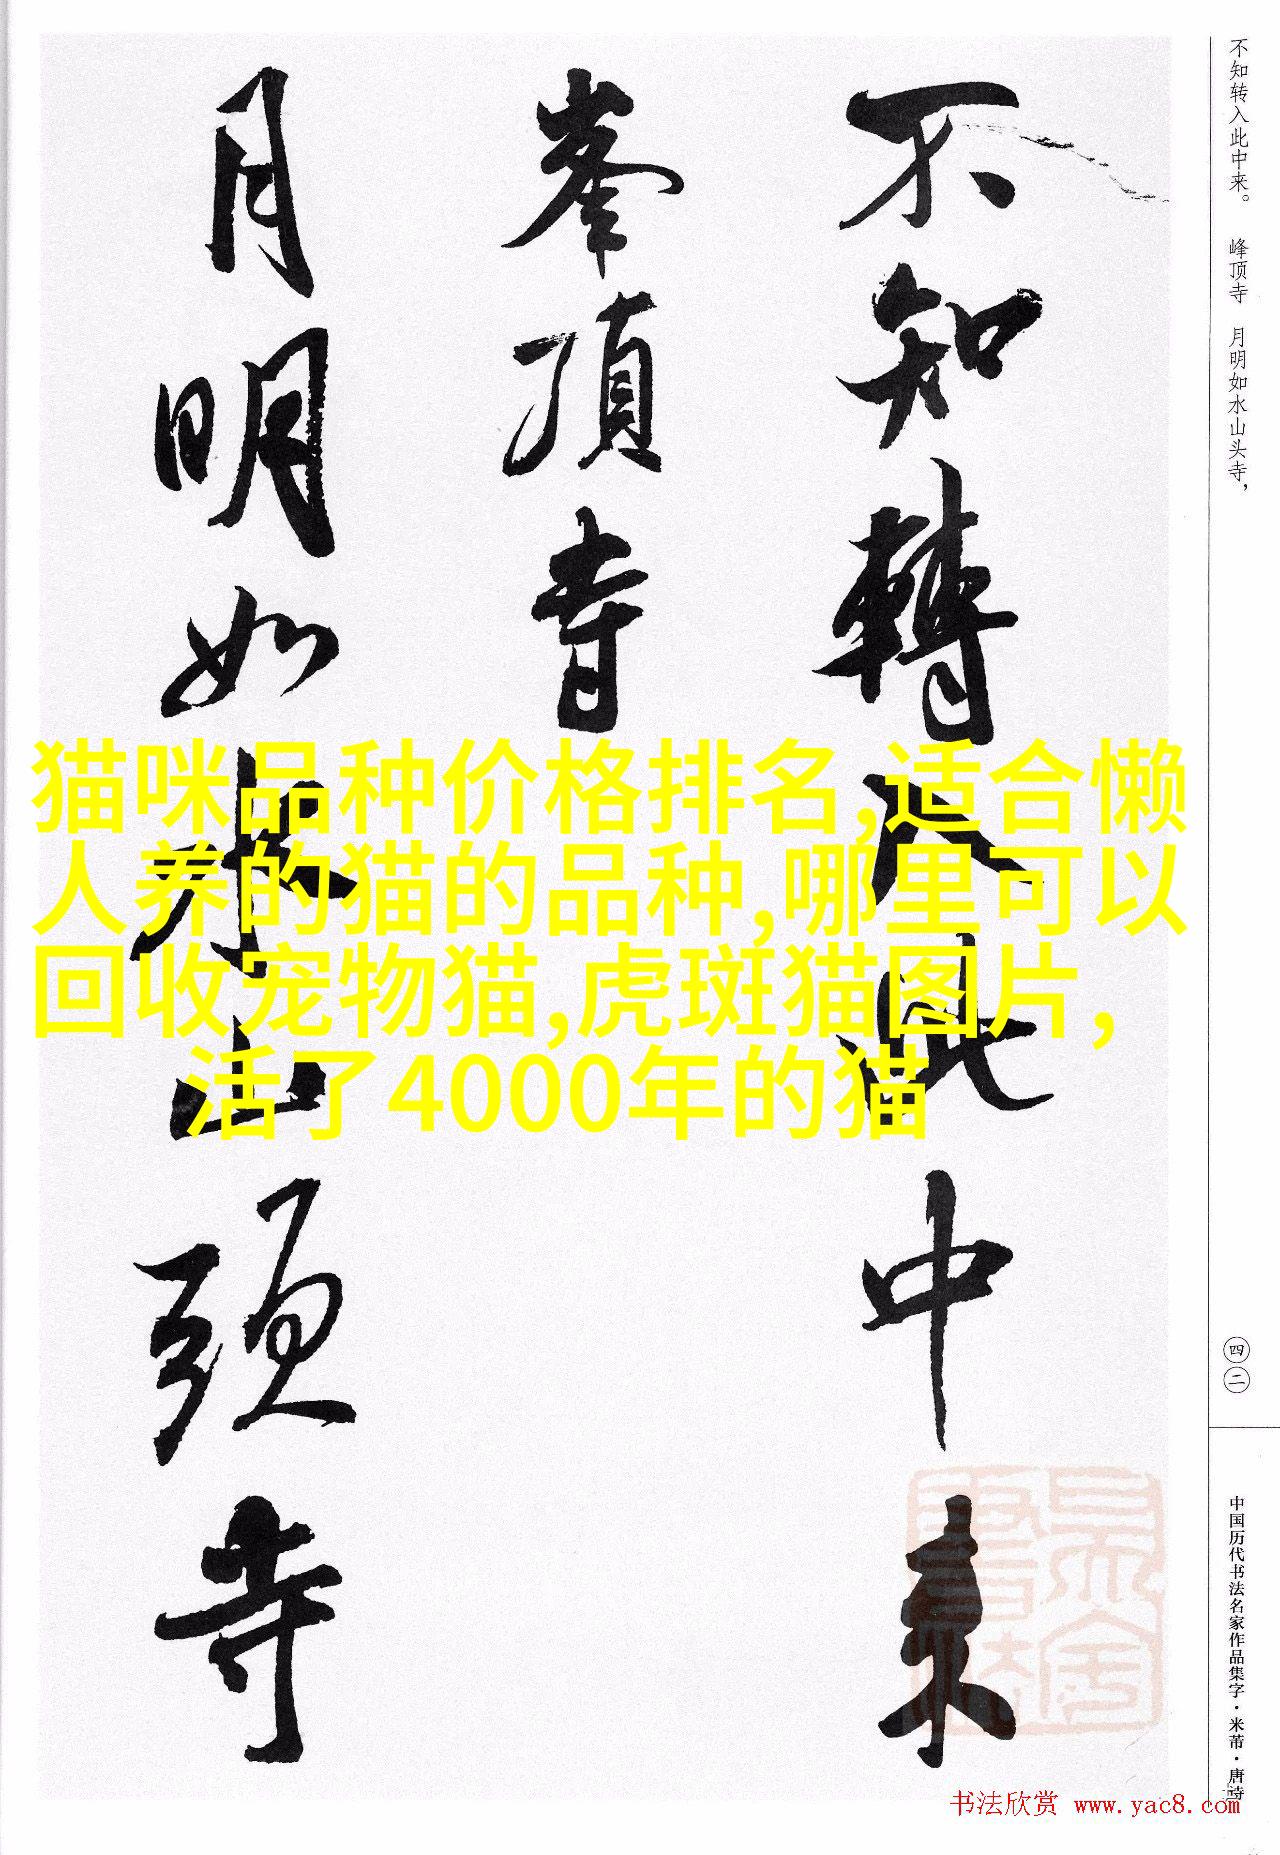 不知转入此中来。 峰顶寺 月明如水山头寺，
不知轉入此中来
峯頂寺
月明如水山頭寺
猫咪品种价格排名,适合懒
人养的猫的品种,哪里可以
回收宠物猫,虎斑猫图片,
活了4000年的猫
四二
中国历代书法名家作品集字·米芾·唐诗
书法欣赏 www.yac8.com